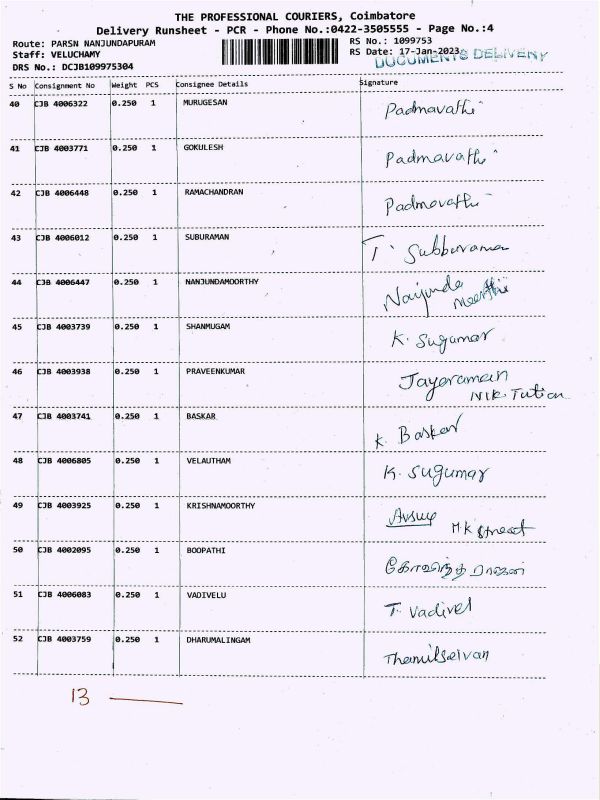 THE PROFESSIONAL COURIERS, Coimbatore
Delivery Runsheet - PCR - Phone No.:0422-3505555 - Page No.:4
Route: PARSN NANJUNDAPURAM RS No.: 1099753
Staff: VELUCHAMY RS Date: 17-Jan-2023
DRS No.: DCJB109975304 DOCUMENTS DELIVERY
S No Consignment No Weight PCS Consignee Details Signature
40 CJB 4006322 0.250 1 MURUGESAN Padmavathi
41 CJB 4003771 0.250 1 GOKULESH Padmavathi
42 CJB 4006448 0.250 1 RAMACHANDRAN Padmavathi
43 CJB 4006012 0.250 1 SUBURAMAN T. Subburaman
44 CJB 4006447 0.250 1 NANJUNDAMOORTHY Nanjunda
Moorthi
45 CJB 4003739 0.250 1 SHANMUGAM K. Sugumar
46 CJB 4003938 0.250 1 PRAVEENKUMAR Jayaraman
Nik Tution
47 CJB 4003741 0.250 1 BASKAR K. Baskar
48 CJB 4006805 0.250 1 VELAUTHAM K. Sugumar
49 CJB 4003925 0.250 1 KRISHNAMOORTHY
M.K Street
50 CJB 4002095 0.250 1 BOOPATHI
51 CJB 4006083 0.250 1 VADIVELU T. Vadivel
52 CJB 4003759 0.250 1 DHARUMALINGAM Thamilselvan
13